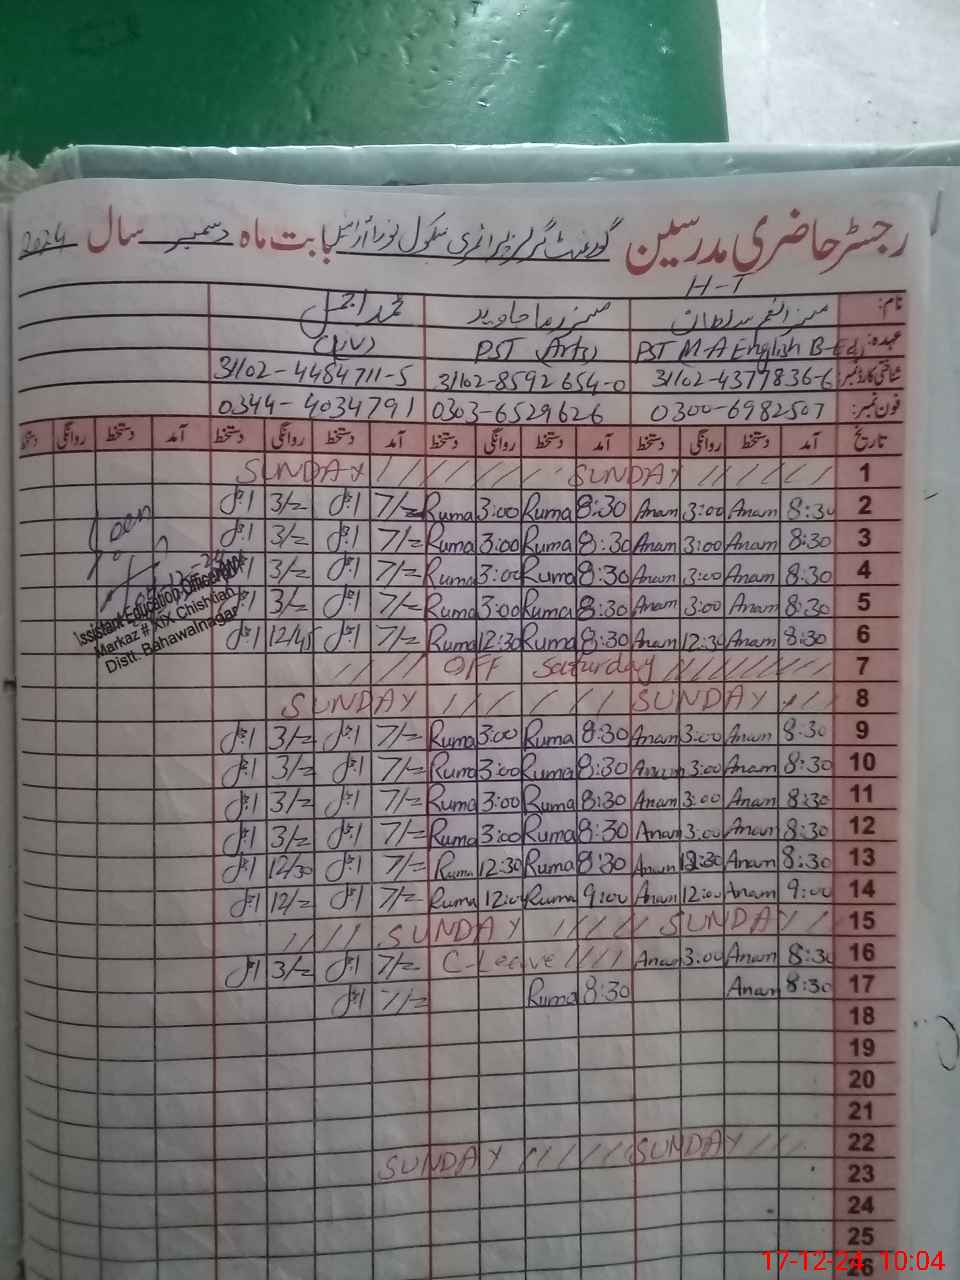 رجسٹر حاضری مدرسین گورنمنٹ گرلز پرائمری سکول نورا آرائیں بابت ماہ دسمبر سال 2024
H-T
نام: مسز انعم سلطان مسز رما جاوید محمد اجمل
عہدہ: PST M-A English B-Ed, PST (Arts) (IV)
شناختی کارڈ نمبر 31102-4379836-6 31102-8592654-0 31102-4484711-5
فون نمبر: 0300-6982507 0303-6529626 0344-4034791
تاریخ آمد دستخط روانگی دستخط آمد دستخط روانگی دستخط آمد دستخط روانگی دستخط آمد دستخط روانگی
1 SUNDAY SUNDAY
2 8:30 Anam 3:00 Anam 8:30 Ruma 3:00 Ruma 7/= اجمل 3/= اجمل
3 8:30 Anam 3:00 Anam 8:30 Ruma 3:00 Ruma 7/= اجمل 3/= اجمل
4 8:30 Anam 3:00 Anam 8:30 Ruma 3:00 Ruma 7/= اجمل 3/= اجمل
5 8:30 Anam 3:00 Anam 8:30 Ruma 3:00 Ruma 7/= اجمل 3/= اجمل
6 8:30 Anam 12:30 Anam 8:30 Ruma 12:30 Ruma 7/= اجمل 12/45 اجمل
Seen
Assistant Education Officer
Markaz # XIX Chishtian
Distt. Bahawalnagar
7 OFF Saturday
8 SUNDAY SUNDAY
9 8:30 Anam 3:00 Anam 8:30 Ruma 3:00 Ruma 7/= اجمل 3/= اجمل
10 8:30 Anam 3:00 Anam 8:30 Ruma 3:00 Ruma 7/= اجمل 3/= اجمل
11 8:30 Anam 3:00 Anam 8:30 Ruma 3:00 Ruma 7/= اجمل 3/= اجمل
12 8:30 Anam 3:00 Anam 8:30 Ruma 3:00 Ruma 7/= اجمل 3/= اجمل
13 8:30 Anam 12:30 Anam 8:30 Ruma 12:30 Ruma 7/= اجمل 12/30 اجمل
14 9:00 Anam 12:00 Anam 9:00 Ruma 12:00 Ruma 7/= اجمل 12/= اجمل
15 SUNDAY SUNDAY
16 8:30 Anam 3:00 Anam C-Leave 7/= اجمل 3/= اجمل
17 8:30 Anam 8:30 Ruma 7/= اجمل
18
19
20
21
22 SUNDAY SUNDAY
23
24
25
26
17-12-24 10:04